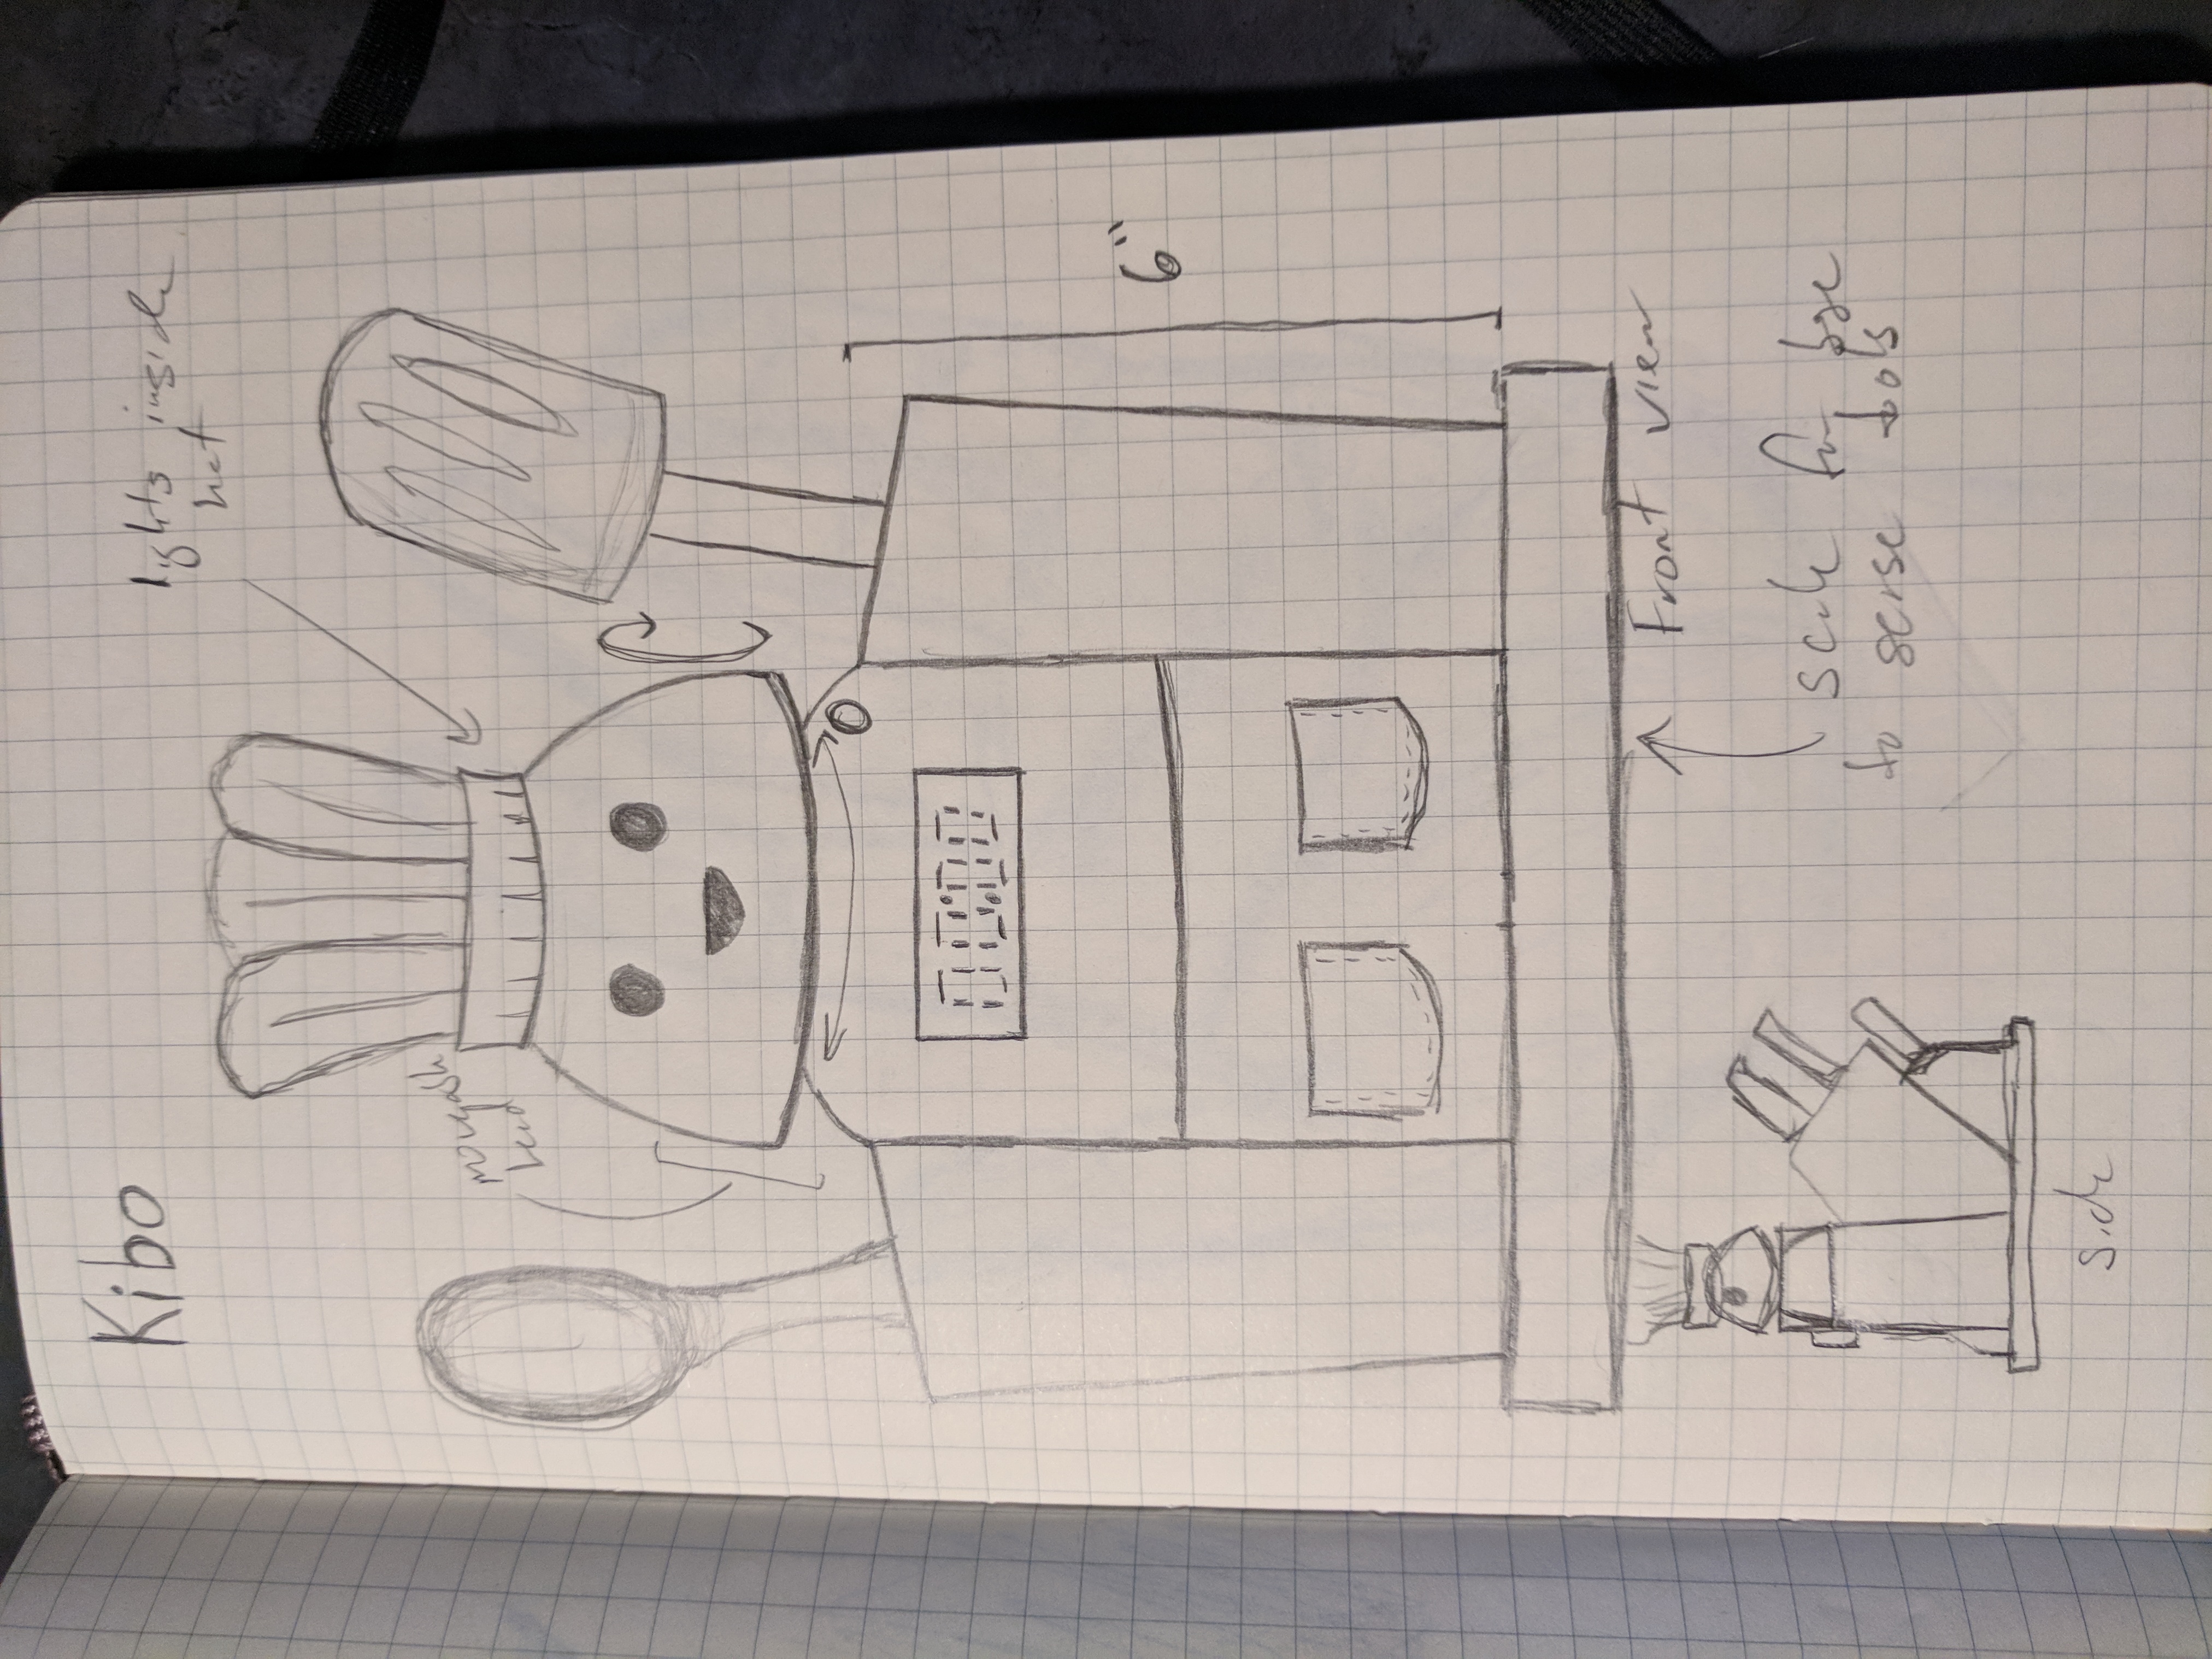 Kibo
lights inside
hat
moveable
head
6"
Front view
scale for base
to sense tools
side